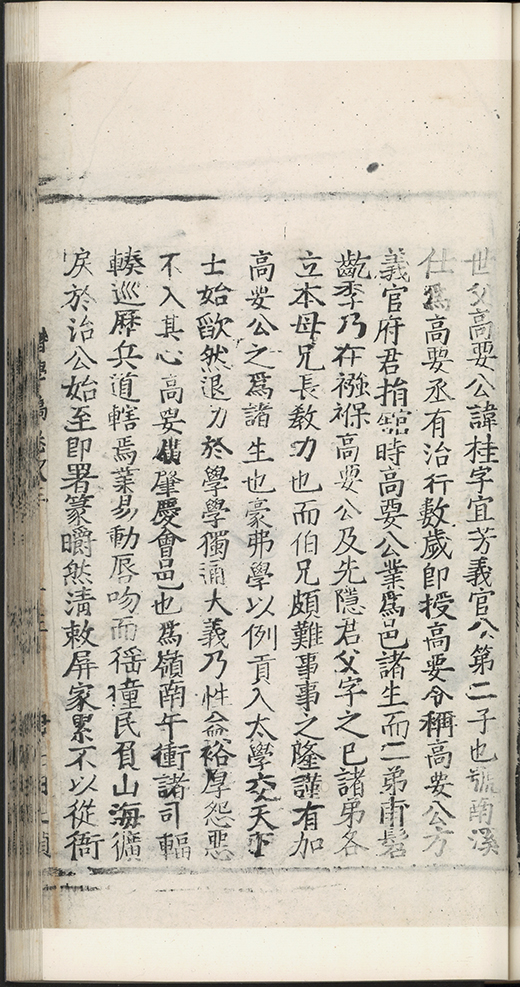 世父高要公諱桂字宜芳義官公第二子也號南溪
仕爲高要丞有治行數歲即授高要令稱高要公方
義官府君捐舘時高要公業爲邑諸生而二弟甫髫
齓季乃在襁褓高要公及先隱君父字之已諸弟各
立本母兄長教力也而伯兄頗難事事之隆謹有加
高要公之爲諸生也豪弗學以例貢入太學交天下
士始歠然退力於學學獨涌大義乃性侖裕厚怨惡
不入其心高要僕肇慶會邑也爲嶺南午衝諸司輻
輳巡歷兵道轄焉業易動唇吻而猺獞民負山海儣
戾於治公始至即署篆㬭然清敕屏家累不以從衙